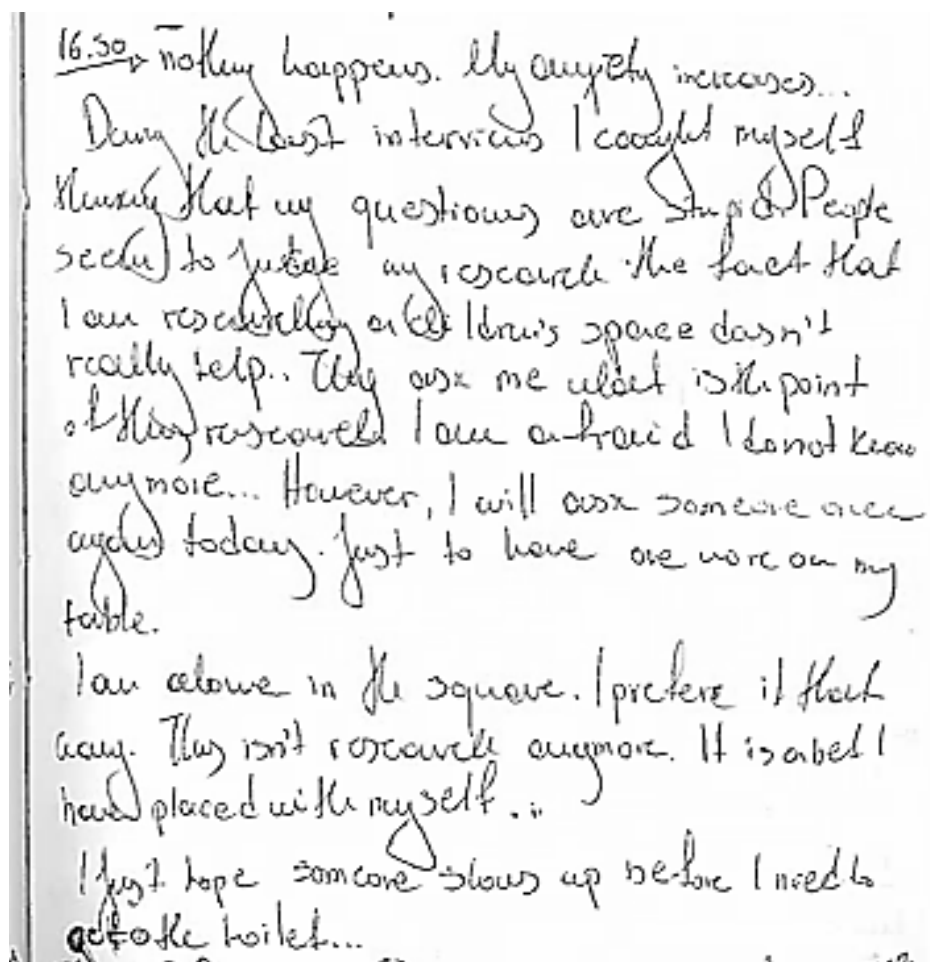 16.30 → nothing happens. My anxiety increases...
During the last interviews I caought myself
thinking that my questions are stupid. People
seem to judge my research. The fact that
I am researching a children's space dasn't
really help.. They ask me what is the point
of this research. I am afraid I do not know
anymore... However, I will ask someone over
again today. Just to have one more on my
table.
I am alowe in the square. I prefere it that
way. This isn't research anymore. It is a bet I
have placed with myself...
I just hope someone shows up before I need to
go to the toilet...